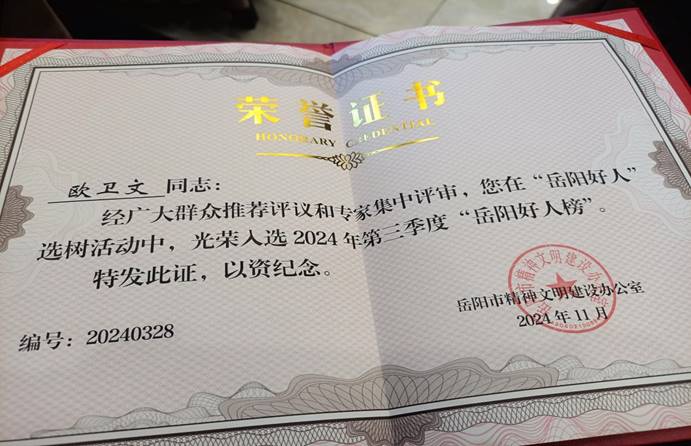 荣誉证书
HONORARY CREDENTIAL
欧卫文 同志：
经广大群众推荐评议和专家集中评审，您在“岳阳好人”
选树活动中，光荣入选2024年第三季度“岳阳好人榜”。
特发此证，以资纪念。
岳阳市精神文明建设办公室
2024年11月
编号：20240328